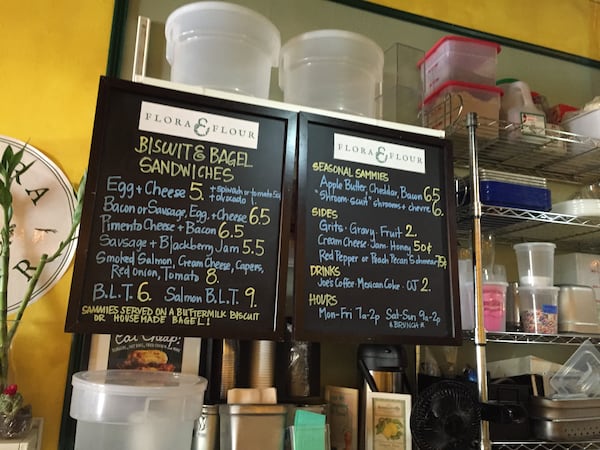 FLORA & FLOUR
BISCUIT & BAGEL
SANDWICHES
Egg + Cheese 5. + spinach or tomato 50¢
+ avocado 1.
Bacon or Sausage, Egg, + Cheese 6.5
Pimento Cheese + Bacon 6.5
Sausage + Blackberry Jam 5.5
Smoked Salmon, Cream Cheese, Capers,
Red Onion, Tomato 8.
B.L.T. 6. Salmon B.L.T. 9.
SAMMIES SERVED ON A BUTTERMILK BISCUIT
OR HOUSEMADE BAGEL!
FLORA & FLOUR
SEASONAL SAMMIES
Apple Butter, Cheddar, Bacon 6.5
"Shroom-scuit" shrooms + chevre 6.
SIDES
Grits · Gravy · Fruit 2.
Cream Cheese · Jam · Honey 50¢
Red Pepper or Peach Pecan Schmear 75¢
DRINKS
Joe's Coffee · Mexican Coke · OJ 2.
HOURS
Mon-Fri 7a-2p Sat-Sun 9a-2p
BRUNCH
RA
RT
Eat Cheap